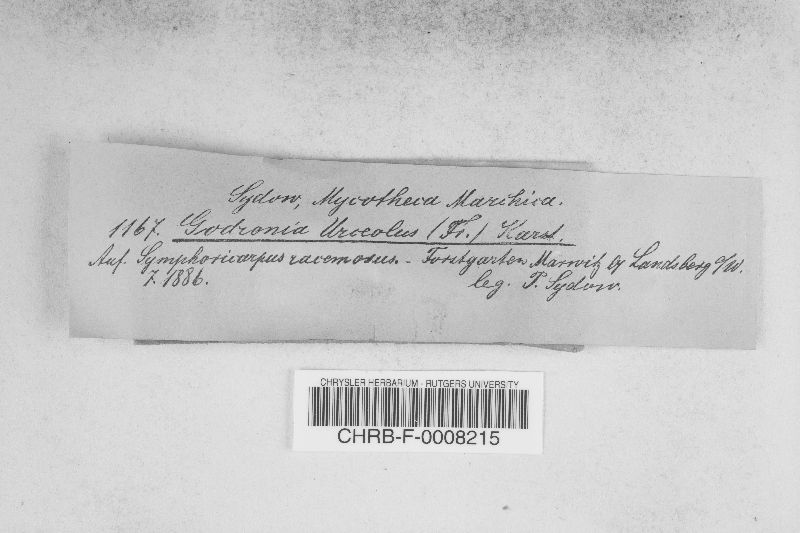 Sydow, Mycotheca Marchica.
1167. Godronia Urceolus (Fr.) Karst.
Auf Symphoricarpus racemosus. - Forstgarten Marwitz b/ Landsberg a/W.
7. 1886. leg. P. Sydow.
CHRYSLER HERBARIUM - RUTGERS UNIVERSITY
CHRB-F-0008215